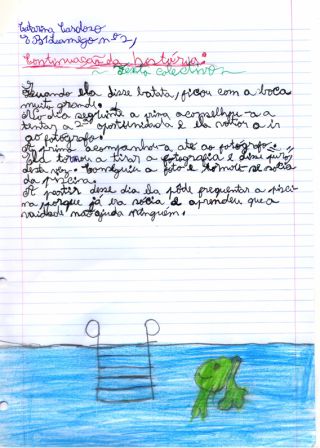 Catarina Cardoso
Continuação da história:
~ Texto coletivo ~
Quando ela disse batata, ficou com a boca
muito grande.
No dia seguinte a prima aconselhou-a a
tentar a 2ª oportunidade e ela voltou a ir
ao fotógrafo.
A prima acompanhou-a até ao fotógrafo.
Ela tornou a tirar a fotografia e disse puro
desta vez. Conseguiu a foto e tornou-se sócia
da piscina.
A partir desse dia ela pôde frequentar a pisci
na porque já era sócia e aprendeu que a
vaidade não ajuda ninguém.